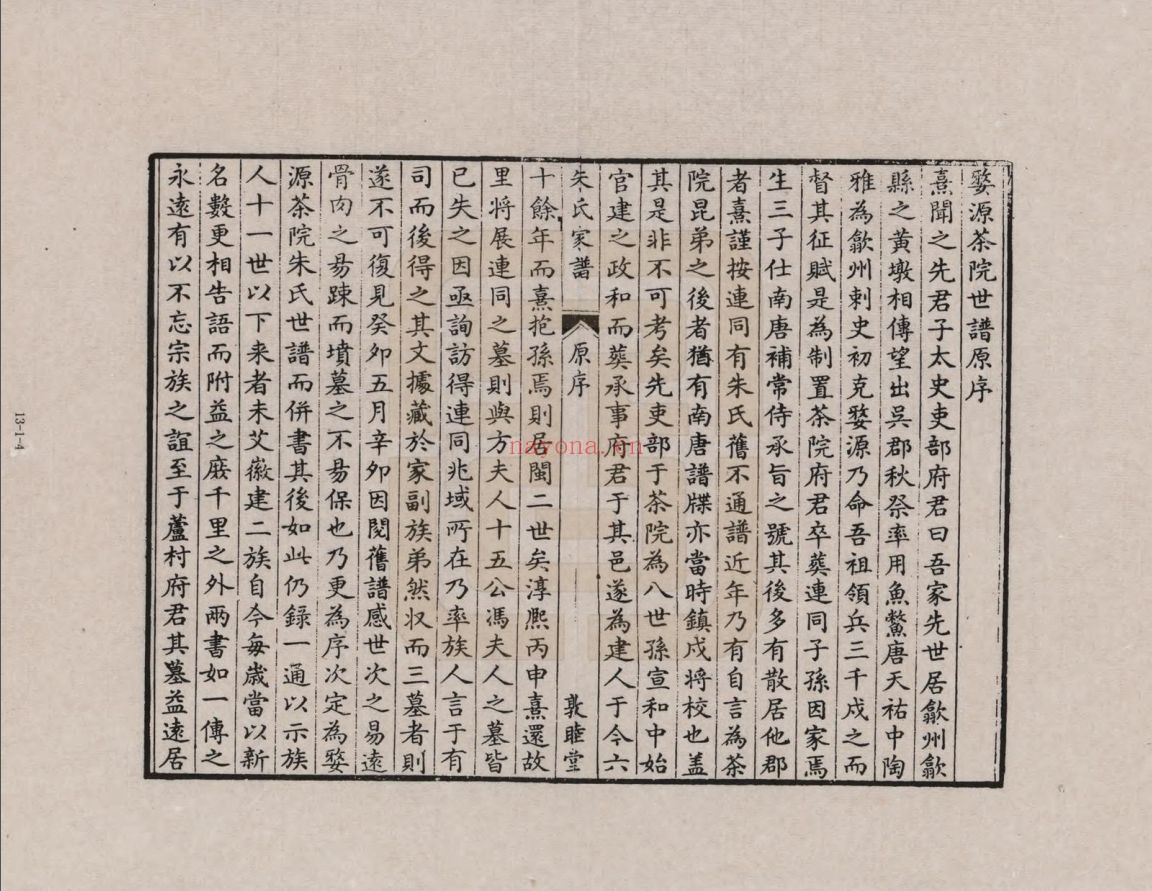 婺源茶院世譜原序
熹聞之先君子太史吏部府君曰吾家先世居歙州歙
縣之黃墩相傳望出吳郡秋祭率用魚鱉唐天祐中陶
雅為歙州刺史初克婺源乃命吾祖領兵三千戍之而
督其征賦是為制置茶院府君卒葬連同子孫因家焉
生三子仕南唐補常侍承旨之號其後多有散居他郡
者熹謹按連同有朱氏舊不通譜近年乃有自言為茶
院昆弟之後者猶有南唐譜牒亦當時鎮戍將校也蓋
其是非不可考矣先吏部于茶院為八世孫宣和中始
官建之政和而葬承事府君于其邑遂為建人于今六
朱氏家譜 原序 敦睦堂
十餘年而熹抱孫焉則居閩二世矣淳熙丙申熹還故
里將展連同之墓則與方夫人十五公馮夫人之墓皆
已失之因亟詢訪得連同兆域所在乃率族人言于有
司而後得之其文據藏於家副族弟然収而三墓者則
遂不可復見癸卯五月辛卯因閱舊譜感世次之易遠
骨肉之易踈而墳墓之不易保也乃更為序次定為婺
源茶院朱氏世譜而併書其後如此仍録一通以示族
人十一世以下来者未艾徽建二族自今每歲當以新
名數更相告語而附益之庻千里之外兩書如一傳之
永遠有以不忘宗族之誼至于蘆村府君其墓益遠居
13-1-4
nayona.cn